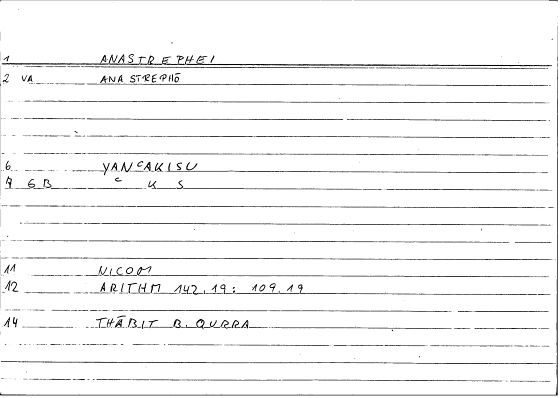 1 ANASTREPHEI
2 VA ANASTREPHŌ
6 YANᶜAKISU
7 GB ᶜ K S
11 NICOM
12 ARITHM 142.19: 109.19
14 THĀBIT B. QURRA